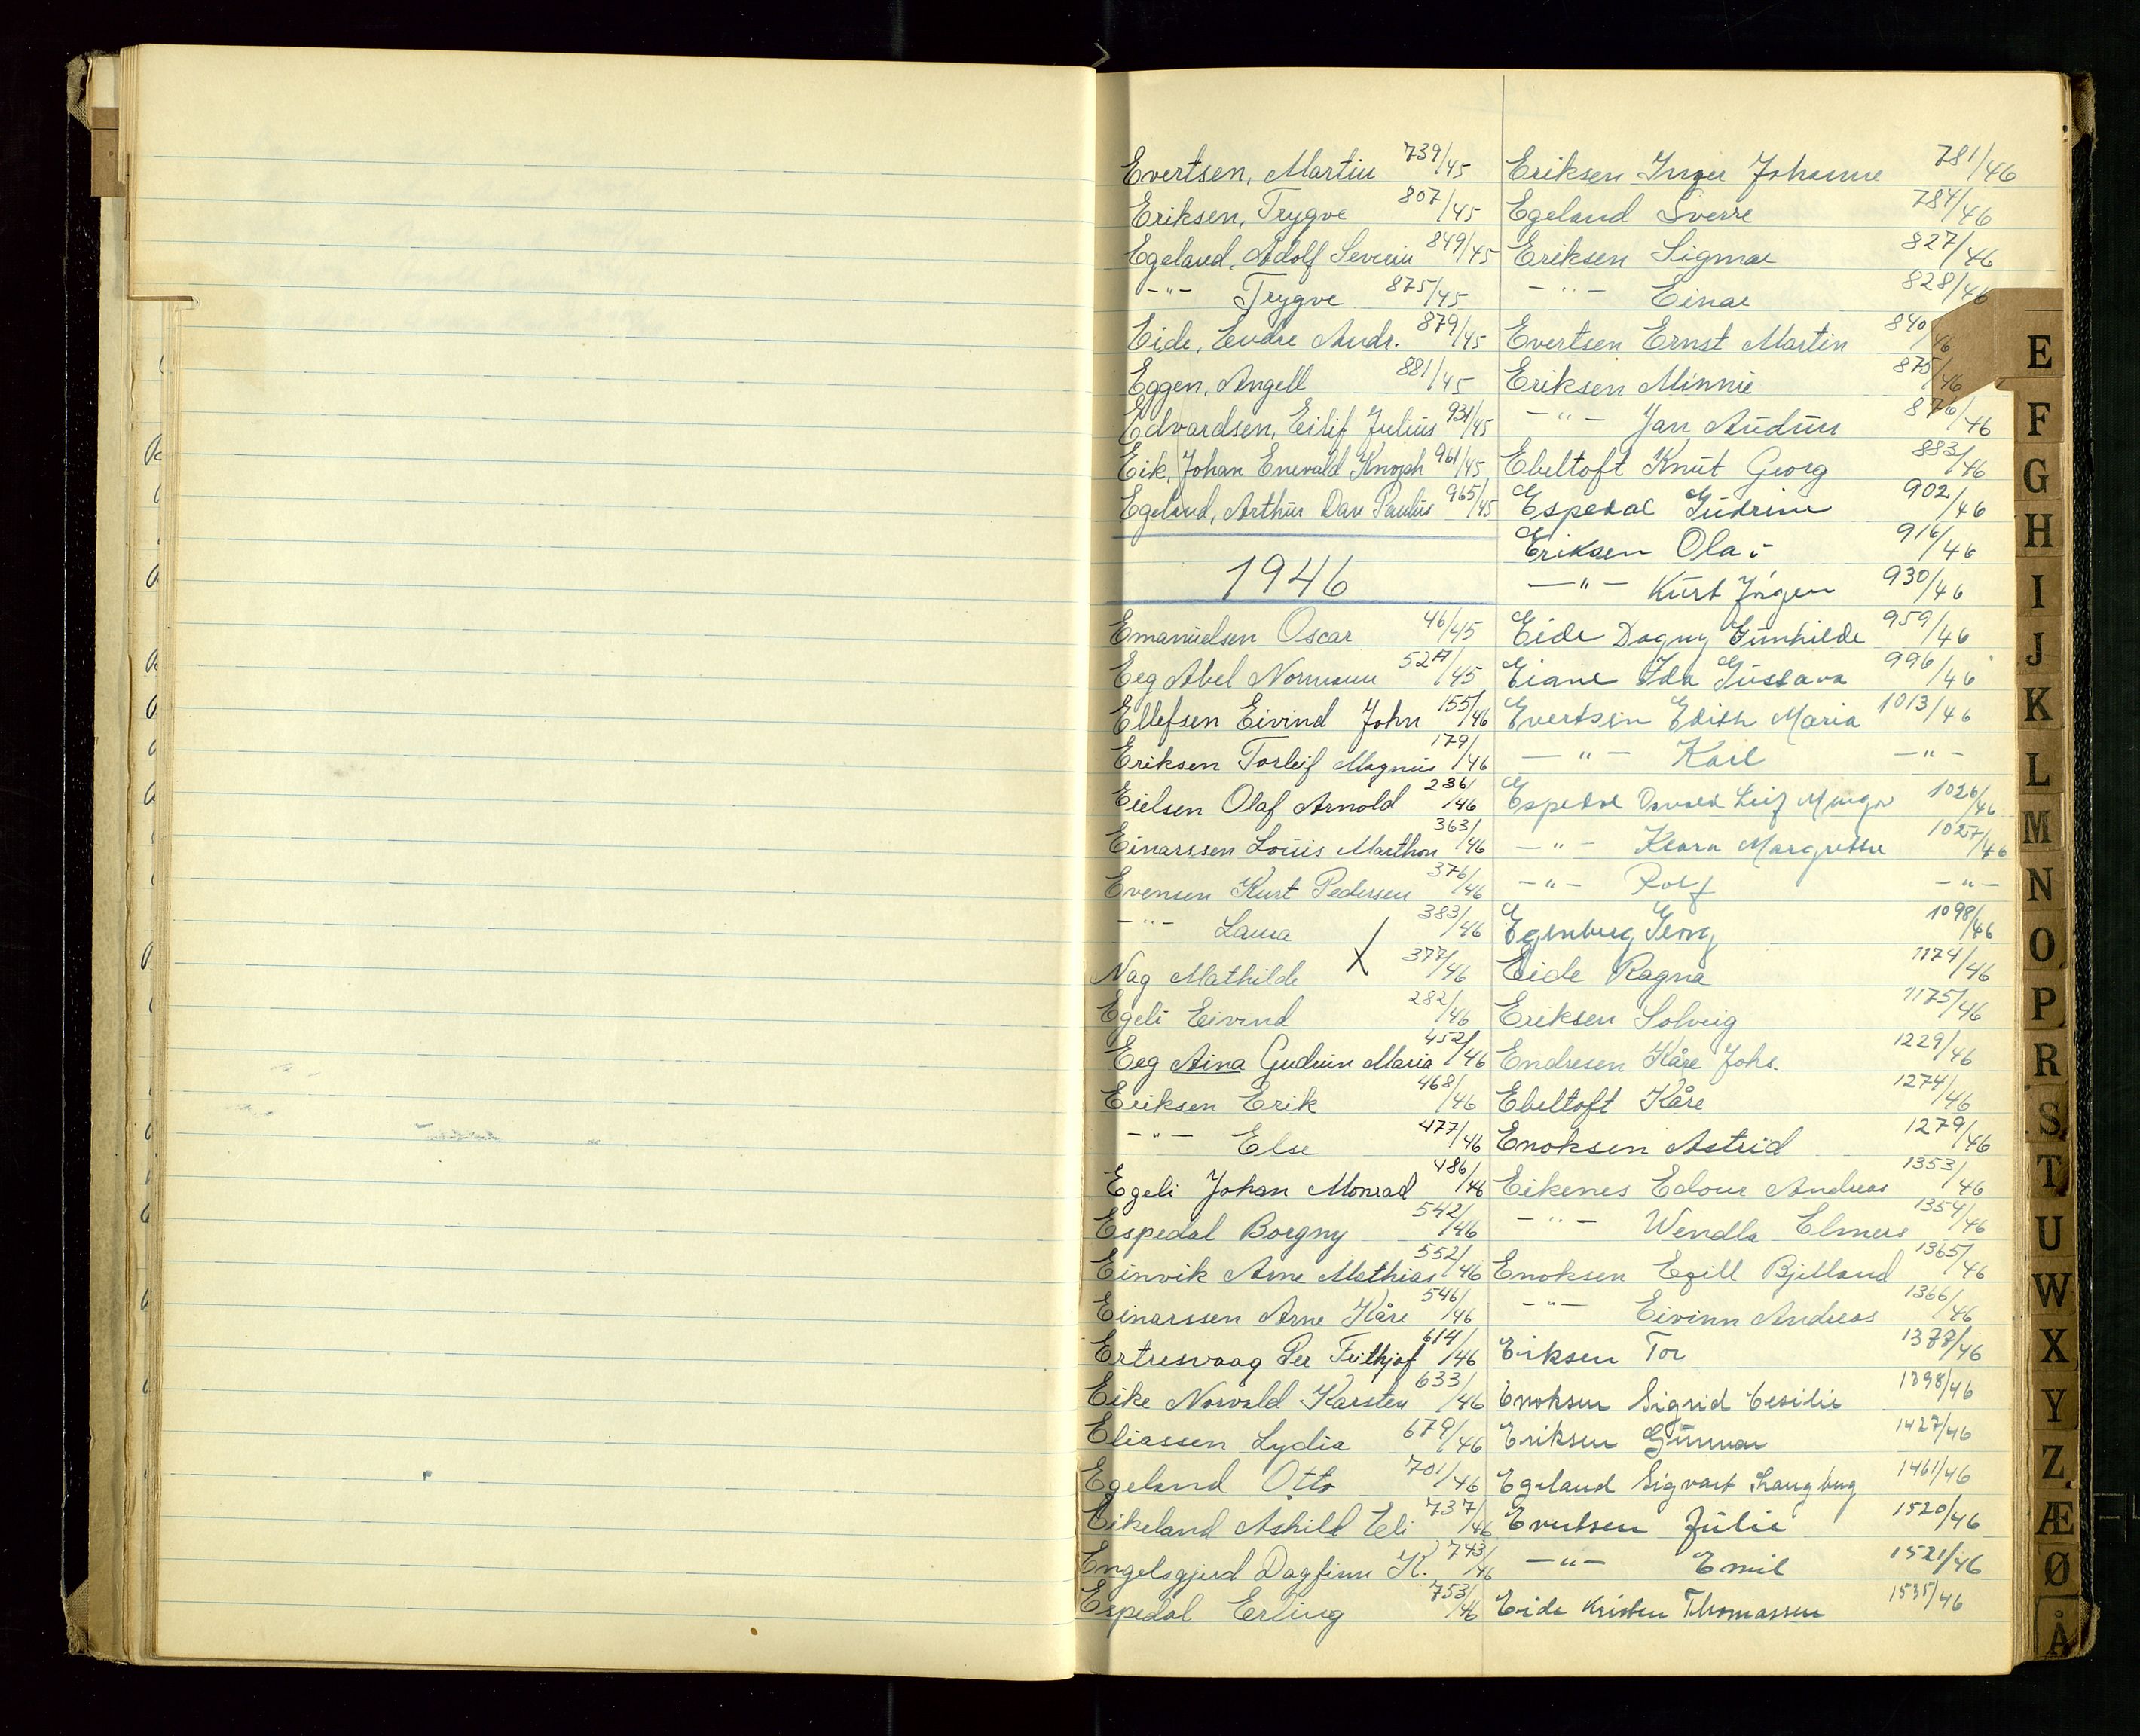 Evertsen, Martin 739/45
Eriksen, Trygve 807/45
Egeland, Adolf Severin 849/45
-"- Trygve 875/45
Eide, Endre Andr. 879/45
Eggen, Angell 881/45
Edvardsen, Eilif Julius 931/45
Eik, Johan Enevald Knoph 961/45
Egeland, Arthur Dav Paulus 965/45
1946
Emanuelsen Oscar 46/45
Eeg Abel Normann 527/45
Ellefsen Eivind John 155/46
Eriksen Torleif Magnus 179/46
Eielsen Olaf Arnold 236/46
Einarssen Louis Marthon 363/46
Evensen Kurt Pedersen 376/46
-"- Laura 383/46
Nag Mathilde X 377/46
Egeli Eivind 282/46
Eeg Aina Gudrun Maria 452/46
Eriksen Erik 468/46
-"- Else 477/46
Egeli Johan Monrad 486/46
Espedal Borgny 542/46
Einvik Arne Mathias 552/46
Einarssen Arne Kåre 546/46
Ertresvaag Per Frithjof 614/46
Eike Norvald Karsten 633/46
Eliassen Lydia 679/46
Egeland Otto 701/46
Eikeland Ashild Eli 737/46
Engelsgjerd Dagfinn K. 743/46
Espedal Erling 753/46
Eriksen Inger Johanne 781/46
Egeland Sverre 784/46
Eriksen Sigmar 827/46
-"- Einar 828/46
Evertsen Ernst Martin 840/46
Eriksen Minnie 875/46
-"- Jan Audun 876/46
Ebeltoft Knut Georg 883/46
Espedal Gudrun 902/46
Eriksen Olav 916/46
-"- Kurt Jørgen 930/46
Eide Dagny Gunhilde 959/46
Eiane Ida Gustava 996/46
Evertsen Edith Maria 1013/46
-"- Karl -"-
Espedal Leif 1026/46
-"- Klara Margrethe 1027/46
-"- Rolf -"-
Egenberg Georg 1098/46
Eide Ragna 1174/46
Eriksen Solveig 1175/46
Endresen Kåre Johs. 1229/46
Ebeltoft Kåre 1274/46
Enoksen Astrid 1279/46
Eikenes Edour Andreas 1353/46
-"- Wendla Elmere 1354/46
Enoksen Egill Bjelland 1365/46
-"- Eivinn Andreas 1366/46
Eriksen Tor 1377/46
Enoksen Sigrid Cesilie 1398/46
Eriksen Gunnar 1427/46
Egeland Sigvart Langberg 1461/46
Evertsen Julie 1520/46
-"- Emil 1521/46
Eide Kristen Thomassen 1535/46
E
F
G
H
I
J
K
L
M
N
O
P
R
S
T
U
W
X
Y
Z
Æ
Ø
Å